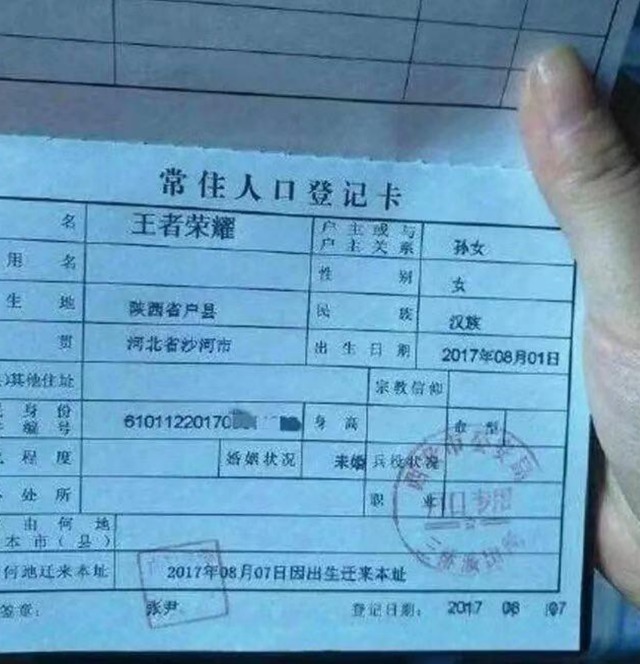 常住人口登记卡
名 王者荣耀 户主或与户主关系 孙女
用名 性别 女
生地 陕西省户县 民族 汉族
贯 河北省沙河市 出生日期 2017年08月01日
其他住址 宗教信仰
身份 61011220170 身高 血型
编号
程度 婚姻状况 未婚 兵役状况
处所 职业
由何地
本市(县)
何地迁来本址 2017年08月07日因出生迁来本址
签章: 张尹 登记日期: 2017 08 07